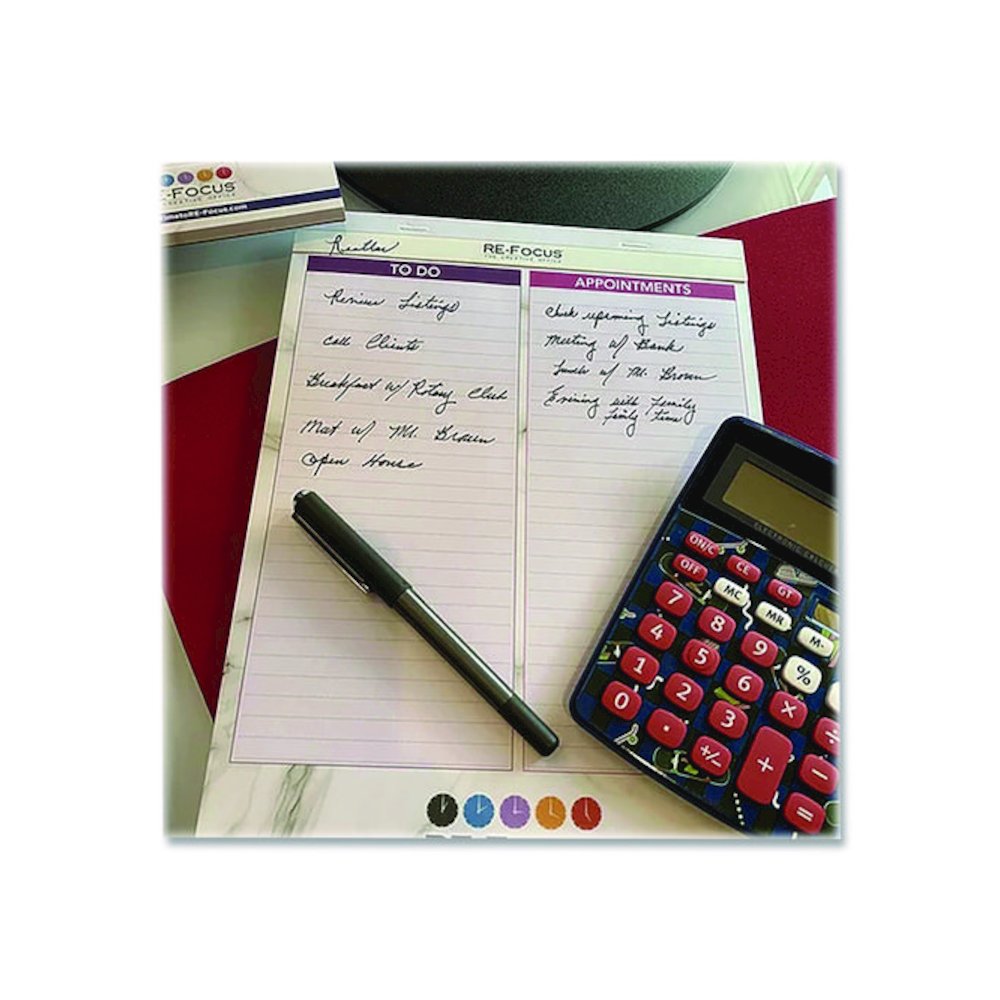 RE-FOCUS
THE CREATIVE OFFICE
RE-Focus.com
Realtor
RE-FOCUS
THE CREATIVE OFFICE
TO DO
Review Listings
Call Clients
Breakfast w/ Rotary Club
Meet w/ Mr. Brown
Open House
APPOINTMENTS
Check upcoming Listings
Meeting w/ Bank
Lunch w/ Mr. Brown
Evening with Family
family time
ELECTRONIC
ON/C
CE
GT
OFF
MC
MR
M-
7
8
9
%
4
5
6
×
÷
1
2
3
+
−
0
.
+/−
=